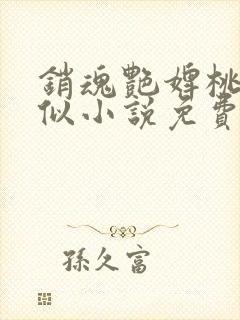 銷魂艷婢桃
似小說免費
孫久富